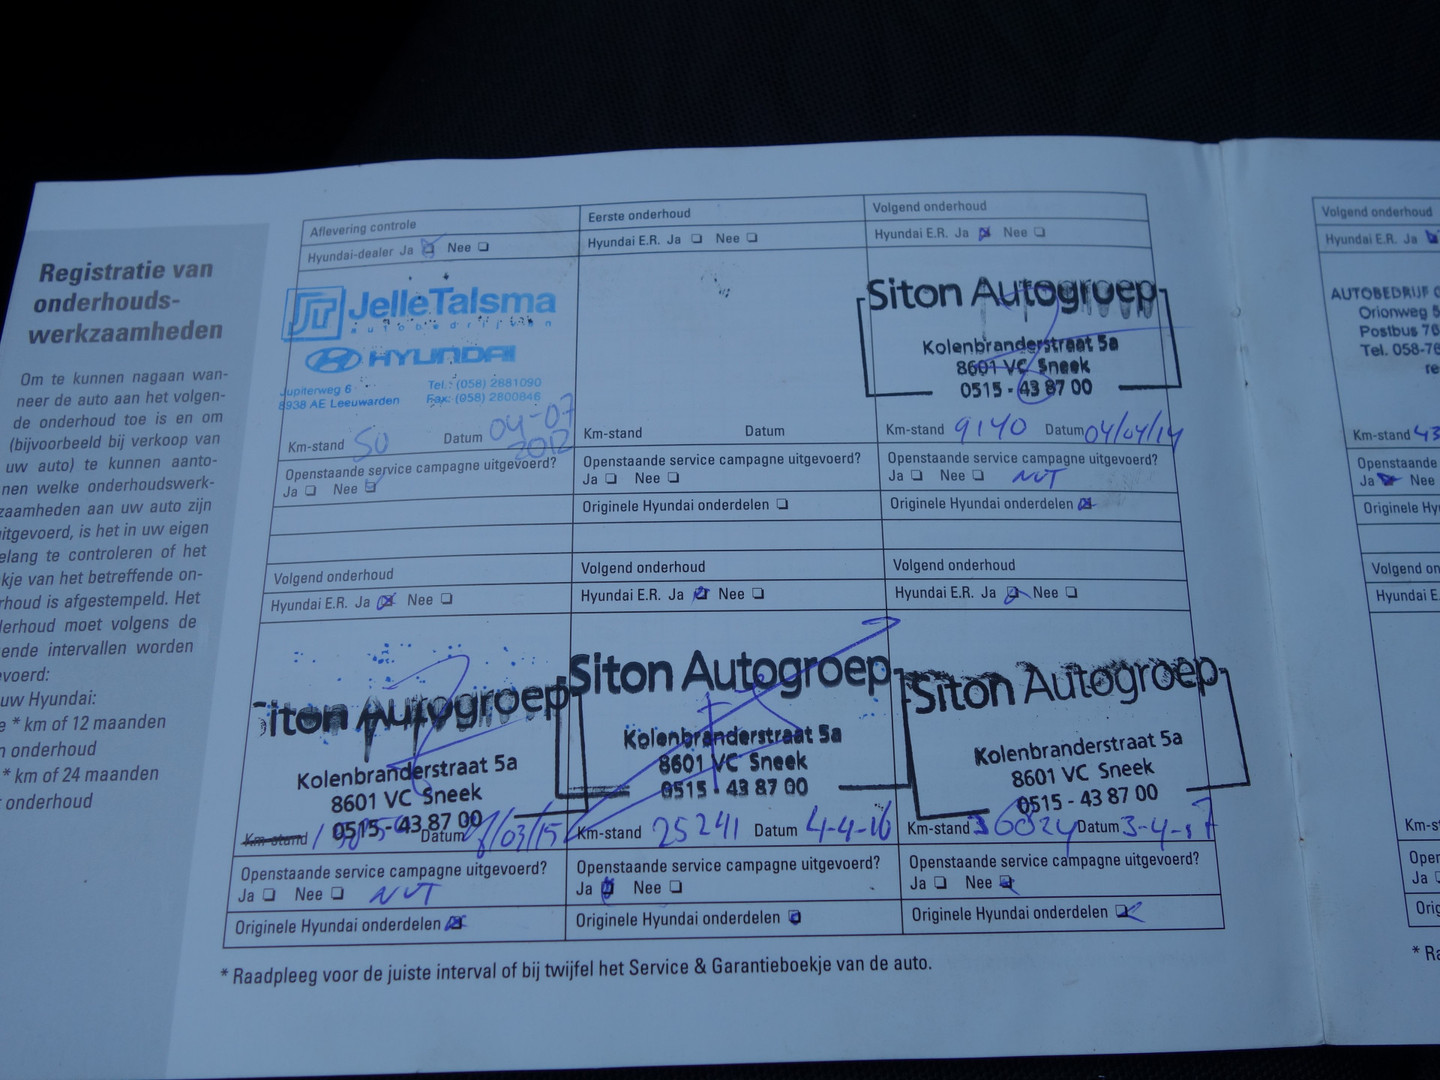 Registratie van
onderhouds-
werkzaamheden
Om te kunnen nagaan wan-
neer de auto aan het volgen-
de onderhoud toe is en om
(bijvoorbeeld bij verkoop van
uw auto) te kunnen aanto-
nen welke onderhoudswerk-
zaamheden aan uw auto zijn
uitgevoerd, is het in uw eigen
elang te controleren of het
kje van het betreffende on-
rhoud is afgestempeld. Het
derhoud moet volgens de
ende intervallen worden
evoerd:
uw Hyundai:
e * km of 12 maanden
n onderhoud
* km of 24 maanden
r onderhoud
Aflevering controle
Hyundai-dealer Ja Nee
JT JelleTalsma
autobedrijven
HYUNDAI
Jupiterweg 6 Tel.: (058) 2881090
8938 AE Leeuwarden Fax: (058) 2800846
Km-stand 50 Datum 04-07
2012
Openstaande service campagne uitgevoerd?
Ja Nee
Eerste onderhoud
Hyundai E.R. Ja Nee
Km-stand Datum
Openstaande service campagne uitgevoerd?
Ja Nee
Originele Hyundai onderdelen
Volgend onderhoud
Hyundai E.R. Ja Nee
Siton Autogroep
Kolenbranderstraat 5a
8601 VC Sneek
0515 - 43 87 00
Km-stand 9140 Datum 04/04/14
Openstaande service campagne uitgevoerd?
Ja Nee NVT
Originele Hyundai onderdelen
Volgend onderhoud
Hyundai E.R. Ja Nee
Siton Autogroep
Kolenbranderstraat 5a
8601 VC Sneek
0515 - 43 87 00
Km-stand Datum /03/15
Openstaande service campagne uitgevoerd?
Ja Nee NVT
Originele Hyundai onderdelen
Volgend onderhoud
Hyundai E.R. Ja Nee
Siton Autogroep
Kolenbranderstraat 5a
8601 VC Sneek
0515 - 43 87 00
Km-stand 25241 Datum 4-4-16
Openstaande service campagne uitgevoerd?
Ja Nee
Originele Hyundai onderdelen
Volgend onderhoud
Hyundai E.R. Ja Nee
Siton Autogroep
Kolenbranderstraat 5a
8601 VC Sneek
0515 - 43 87 00
Km-stand 36024 Datum 3-4-17
Openstaande service campagne uitgevoerd?
Ja Nee
Originele Hyundai onderdelen
* Raadpleeg voor de juiste interval of bij twijfel het Service & Garantieboekje van de auto.
Volgend onderhoud
Hyundai E.R. Ja
AUTOBEDRIJF
Orionweg 5
Postbus 76
Tel. 058-76
re
Km-stand 43
Openstaande
Ja Nee
Originele Hy
Volgend on
Hyundai E.
Km-s
Oper
Ja
Orig
* Ra